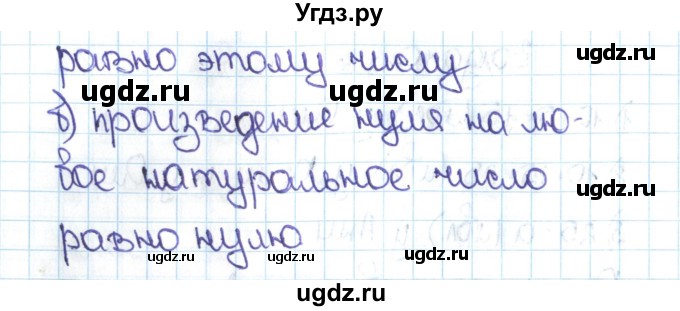 Угдз.ру
равно этому числу
ugdz.ru
ugdz.ru
ugdz.ru
б) произведение нуля на лю-
бое натуральное число
равно нулю
ugdz.ru
ugdz.ru
ugdz.ru